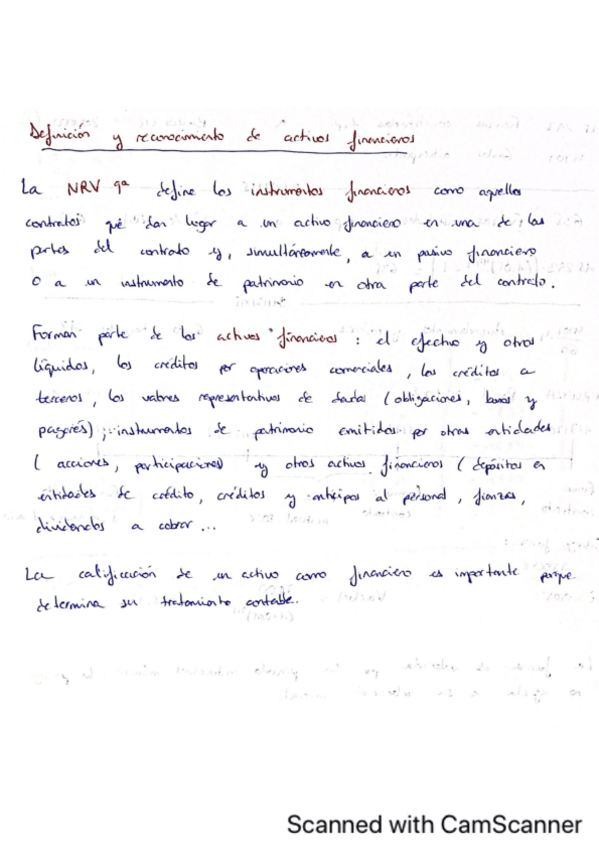 Definición y reconocimiento de activos financieros
La NRV 9ª define los instrumentos financieros como aquellos
contratos que dan lugar a un activo financiero en una de las
partes del contrato y, simultáneamente, a un pasivo financiero
o a un instrumento de patrimonio en otra parte del contrato.
Forman parte de los activos financieros: el efectivo y otros
líquidos, los créditos por operaciones comerciales, los créditos a
terceros, los valores representativos de deudas (obligaciones, bonos y
pagarés); instrumentos de patrimonio emitidos por otras entidades
(acciones, participaciones) y otros activos financieros (depósitos en
entidades de crédito, créditos y anticipos al personal, fianzas,
dividendos a cobrar...
La calificación de un activo como financiero es importante porque
determina su tratamiento contable.
Scanned with CamScanner